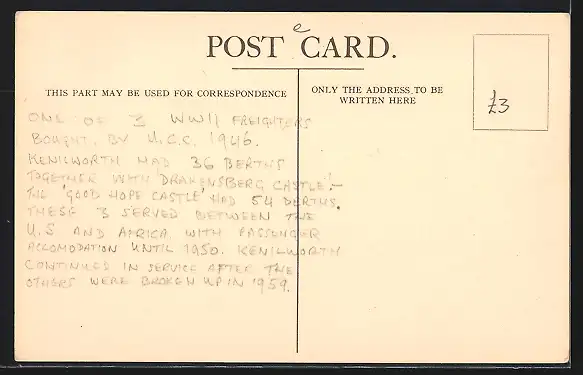 e
POST CARD.
THIS PART MAY BE USED FOR CORRESPONDENCE
ONLY THE ADDRESS TO BE
WRITTEN HERE
£3
ONE OF 3 WWII FREIGHTERS
BOUGHT BY U.C.C. 1946.
KENILWORTH HAD 36 BERTHS
TOGETHER WITH 'DRAKENSBERG CASTLE'.-
THE 'GOOD HOPE CASTLE' HAD 54 BERTHS.
THESE 3 SERVED BETWEEN THE
U.S AND AFRICA WITH PASSENGER
ACCOMODATION UNTIL 1950. KENILWORTH
CONTINUED IN SERVICE AFTER THE
OTHERS WERE BROKEN UP IN 1959.